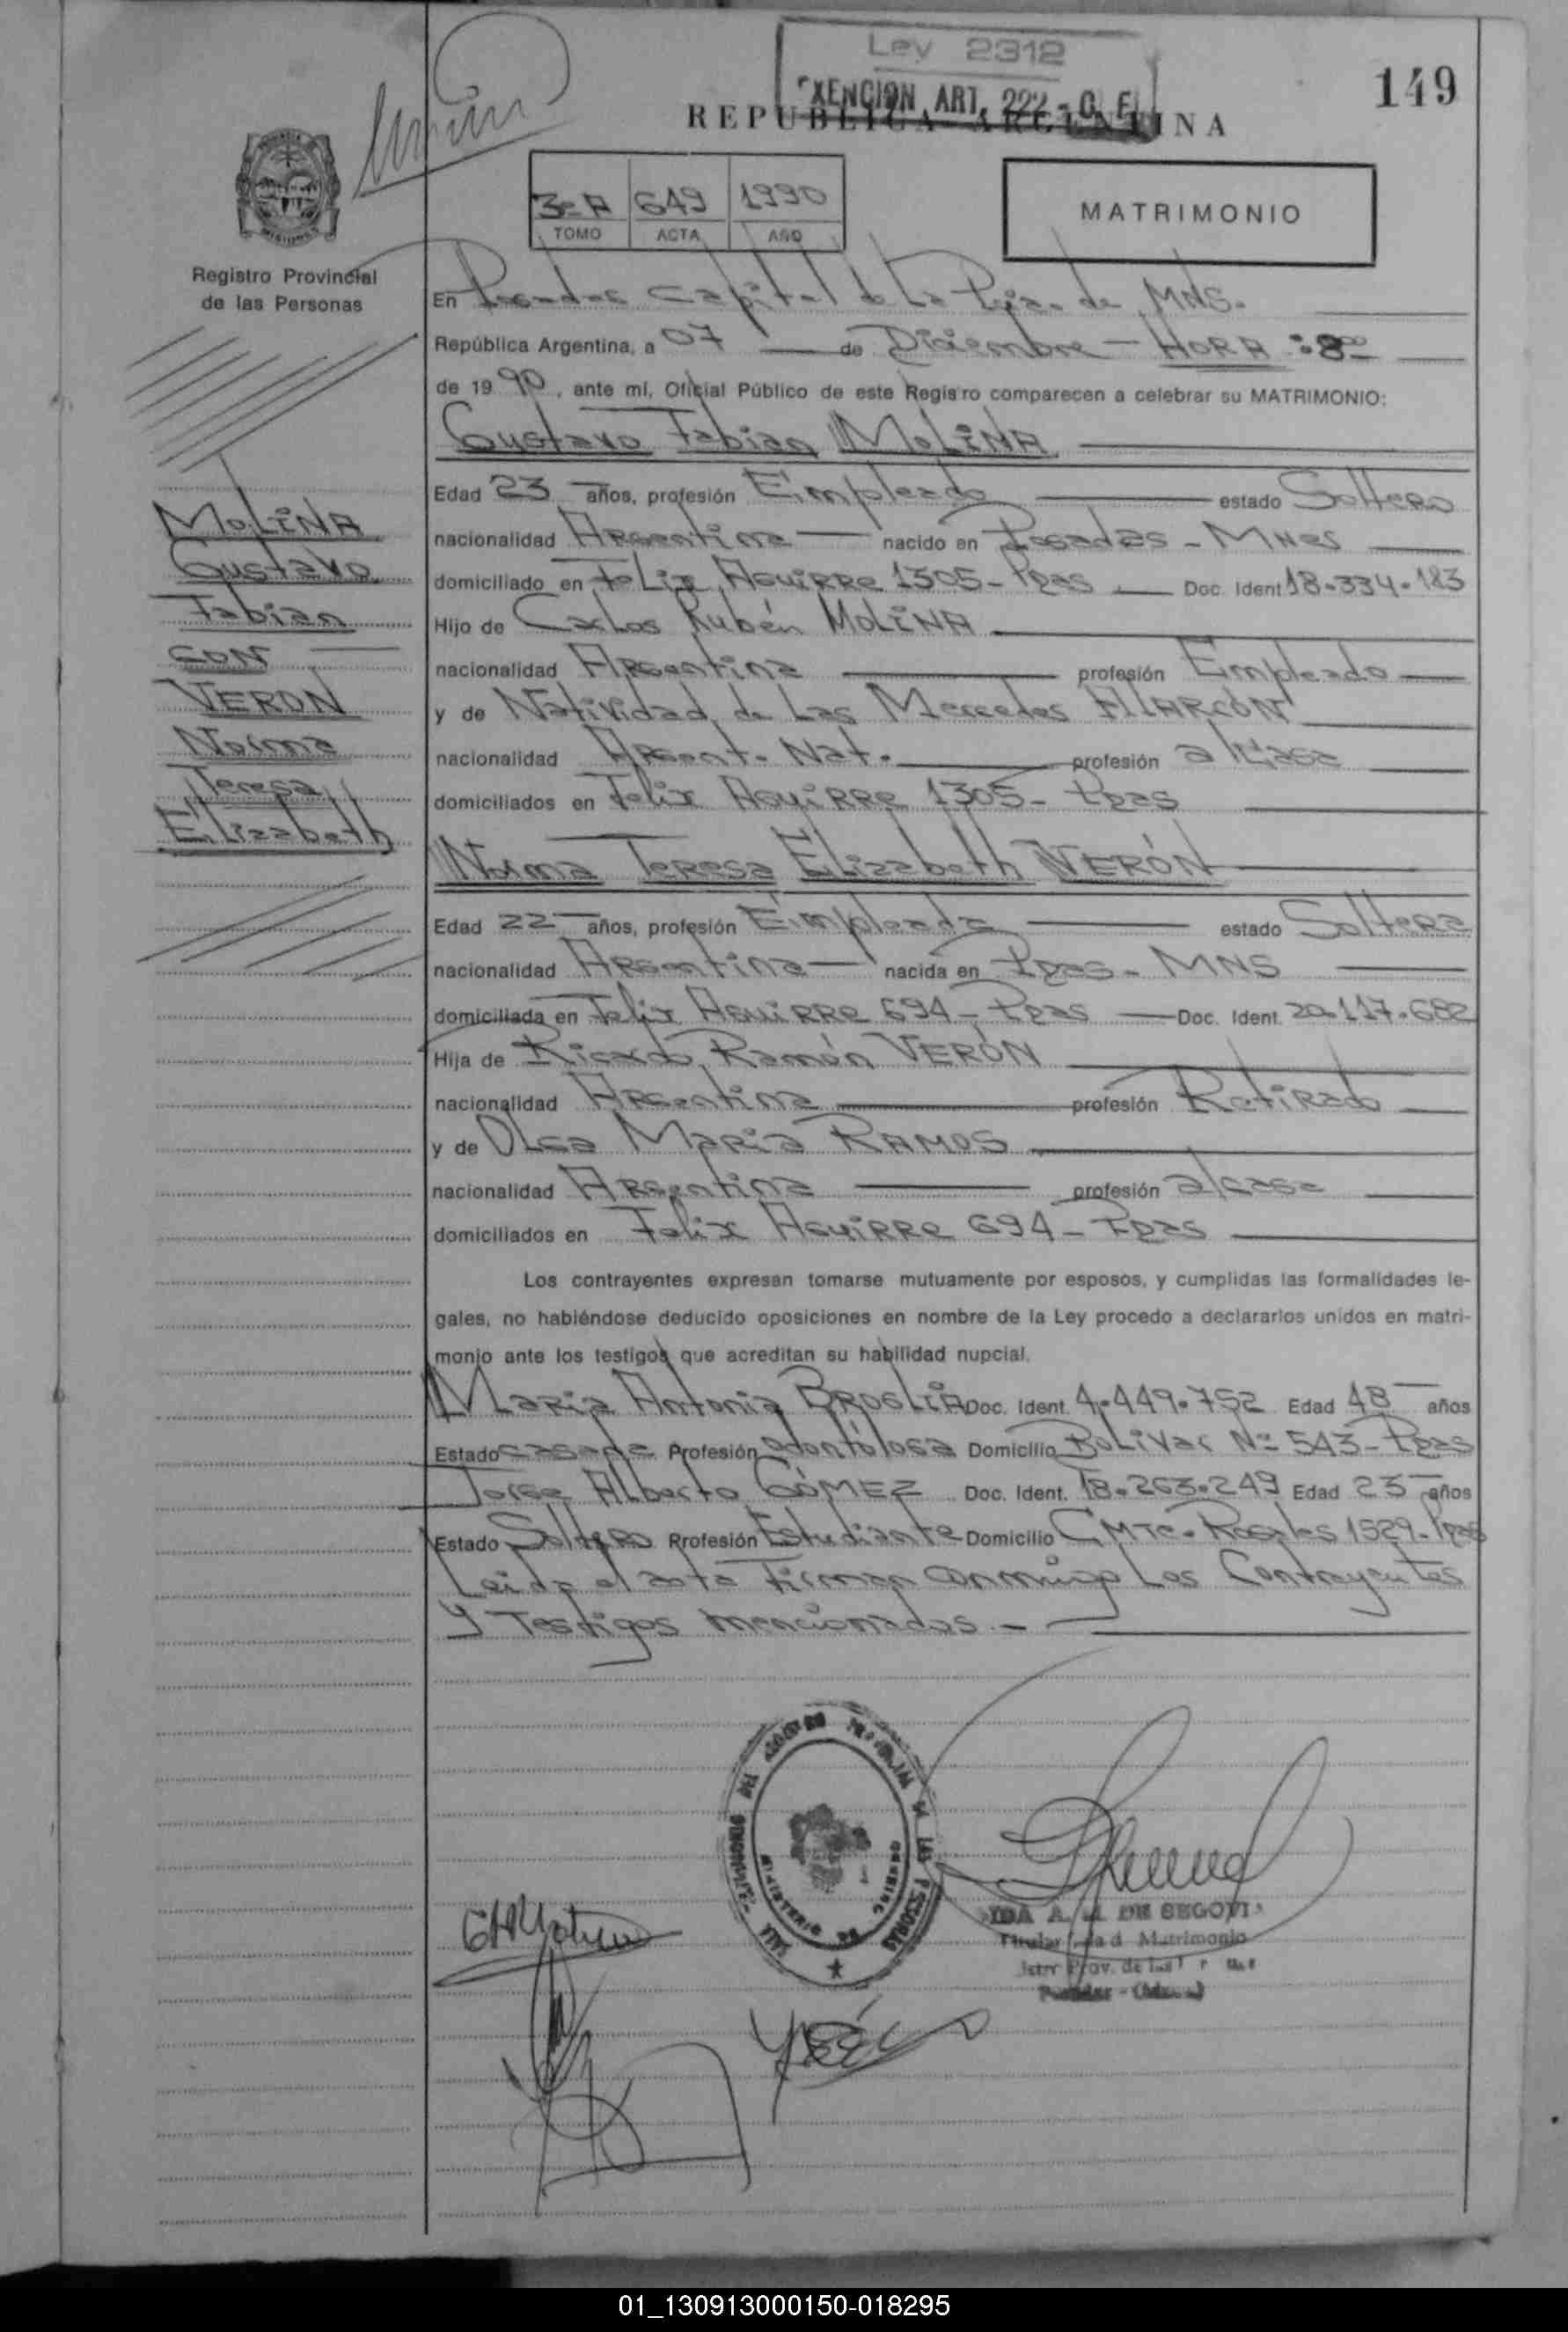 Ley 2312
EXENCION ART. 222 - C. F.
149
REPUBLICA ARGENTINA
3º A 649 1990
TOMO ACTA AÑO
MATRIMONIO
Registro Provincial
de las Personas
En Posadas Capital de La Pcia. de MNS.
República Argentina, a 07 de Diciembre - HORA : 8 00
de 19 90, ante mí, Oficial Público de este Registro comparecen a celebrar su MATRIMONIO:
Gustavo Fabian MOLINA
Edad 23 años, profesión Empleado estado Soltero
nacionalidad Argentina nacido en Posadas - Mnes
domiciliado en Felix Aguirre 1305 - Pdas Doc. Ident 18.334.183
Hijo de Carlos Rubén MOLINA
nacionalidad Argentina profesión Empleado
y de Natividad de Las Mercedes ALARCÓN
nacionalidad Argent. Nat. profesión a/casa
domiciliados en Felix Aguirre 1305 - Pdas
Norma Teresa Elizabeth VERÓN
Edad 22 años, profesión Empleada estado Soltera
nacionalidad Argentina nacida en Pdas - MNS
domiciliada en Felix Aguirre 694 - Pdas Doc. Ident. 20.117.682
Hija de Ricardo Ramón VERÓN
nacionalidad Argentina profesión Retirado
y de Olga Maria RAMOS
nacionalidad Argentina profesión a/casa
domiciliados en Felix Aguirre 694 - Pdas
Los contrayentes expresan tomarse mutuamente por esposos, y cumplidas las formalidades le-
gales, no habiéndose deducido oposiciones en nombre de la Ley procedo a declararlos unidos en matri-
monio ante los testigos que acreditan su habilidad nupcial.
Maria Antonia BROGLIA Doc. Ident. 4.449.752 Edad 48 años
Estado casada Profesión odontóloga Domicilio Bolivar Nº 543 - Pdas
Jorge Alberto GÓMEZ Doc. Ident. 18.263.249 Edad 23 años
Estado Soltero Profesión Estudiante Domicilio CMTE. Rosales 1529 - Pdas
Leida el acta Firman conmigo Los Contrayentes
Y Testigos mencionados. -
MOLINA
Gustavo
Fabian
CON
VERON
Norma
Teresa
Elizabeth
DE SEGOVI
Titular Matrimonio
Prov. de las
01_130913000150-018295